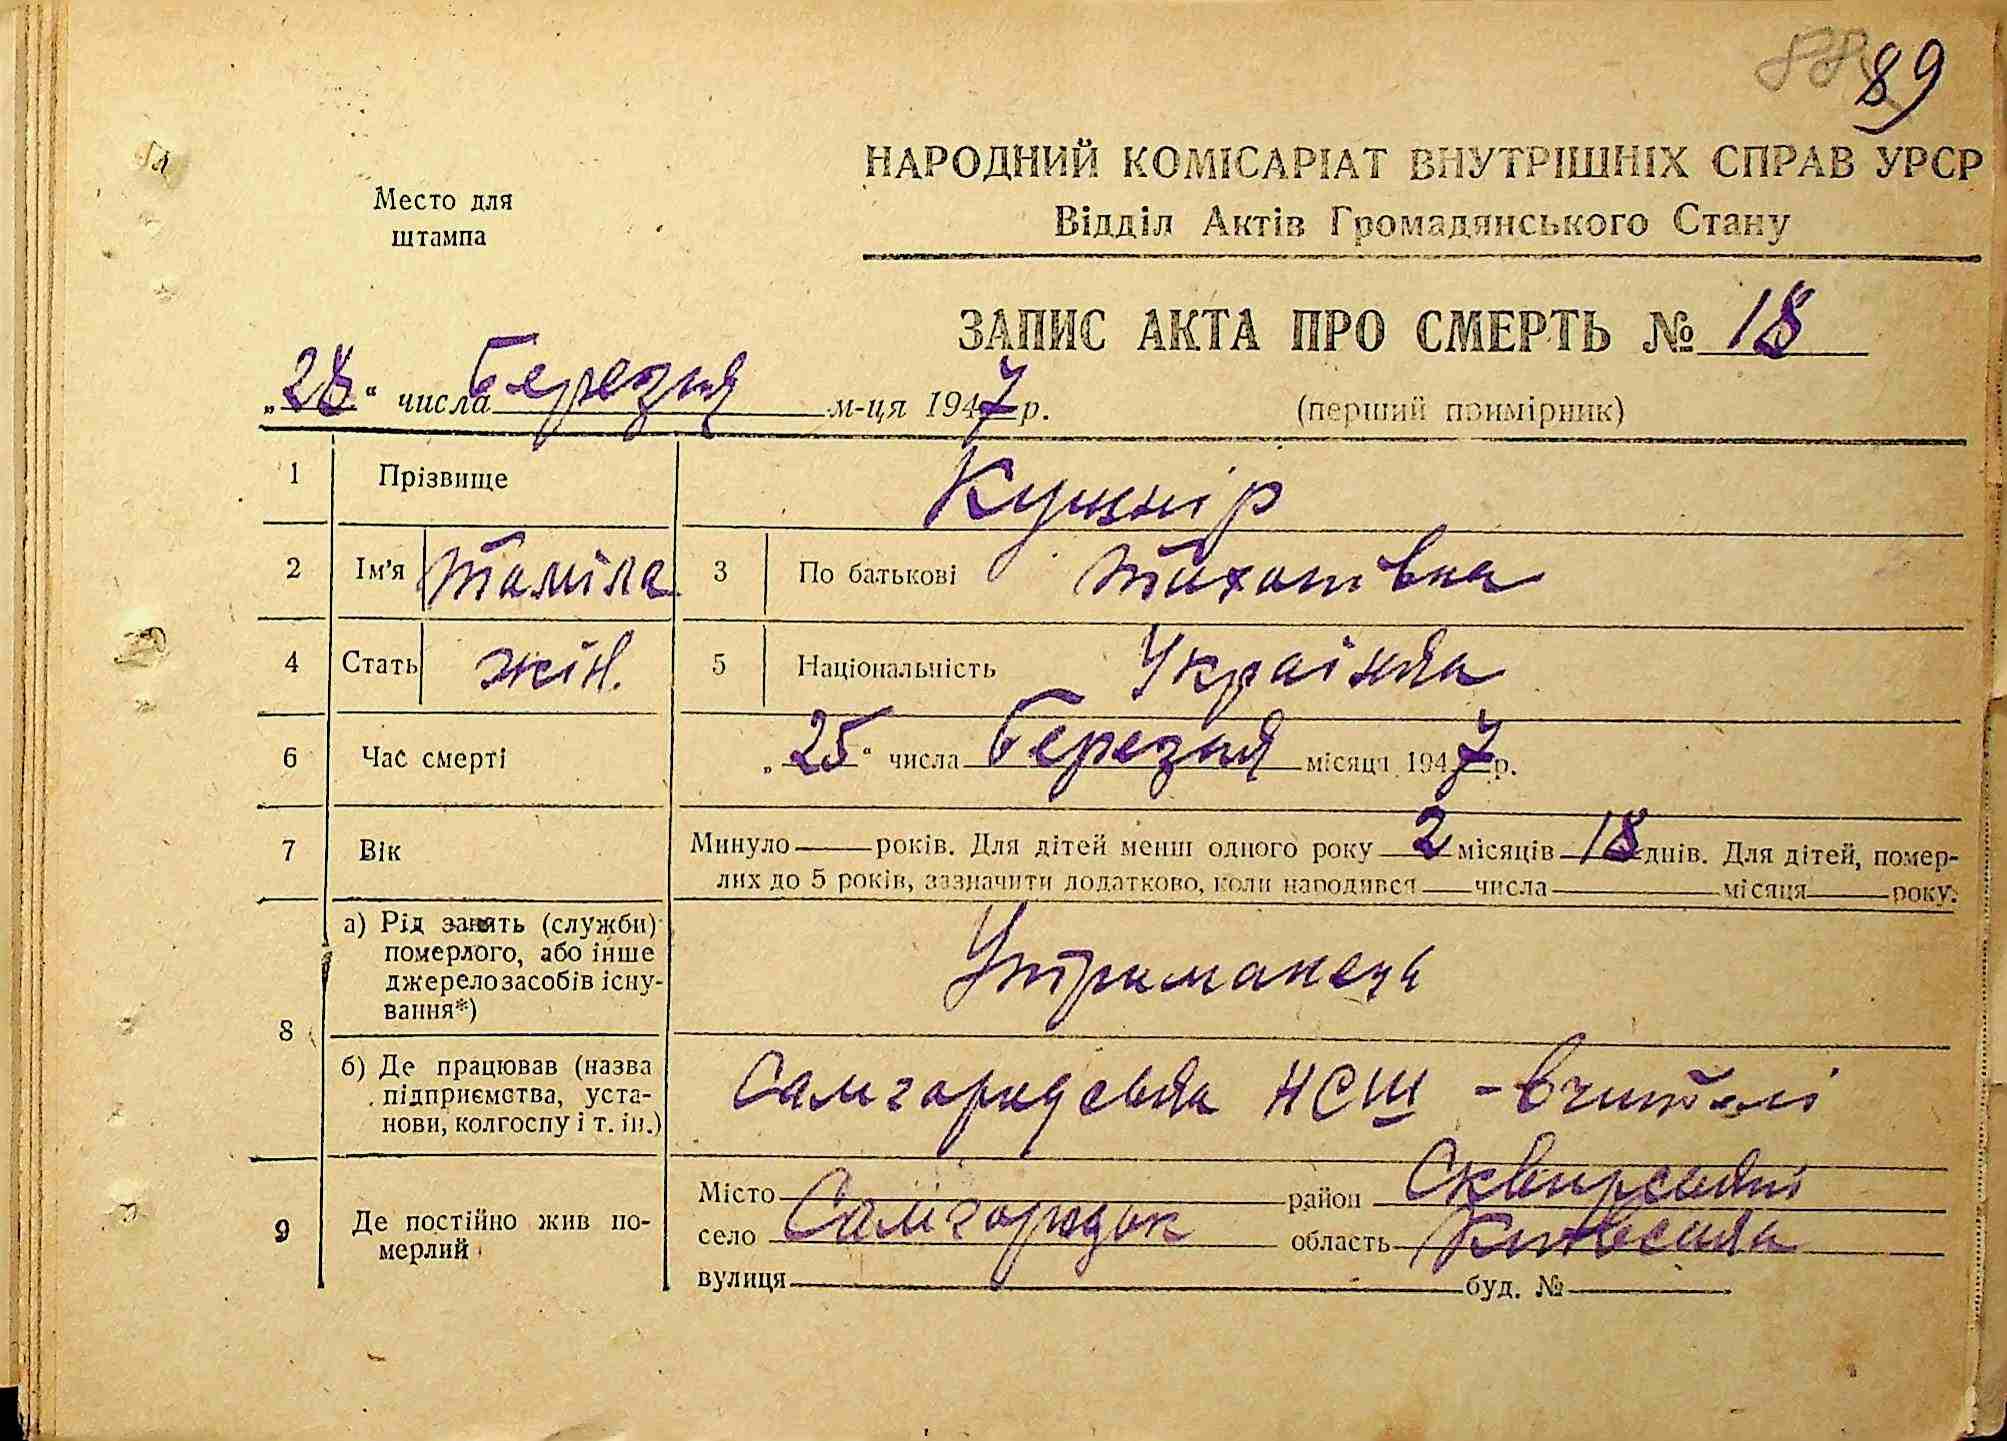 88 89
Место для
штампа
НАРОДНИЙ КОМІСАРІАТ ВНУТРІШНІХ СПРАВ УРСР
Відділ Актів Громадянського Стану
ЗАПИС АКТА ПРО СМЕРТЬ № 18
„28“ числа Березня м-ця 1947 р.
(перший примірник)
1 Прізвище Кушнір
2 Ім'я Таміла 3 По батькові
4 Стать жін. 5 Національність Українка
6 Час смерті „25“ числа Березня місяця 1947 р.
7 Вік Минуло — років. Для дітей менш одного року 2 місяців 18 днів. Для дітей, помер-
лих до 5 років, зазначити додатково, коли народився — числа — місяця — року.
8 а) Рід занять (служби)
померлого, або інше
джерело засобів існу-
вання*)
Утриманець
б) Де працював (назва
підприємства, уста-
нови, колгоспу і т. ін.)
Самгородська НСШ - вчителі
9 Де постійно жив по-
мерлий
Місто район Сквирський
село Самгородок область Київська
вулиця буд. №